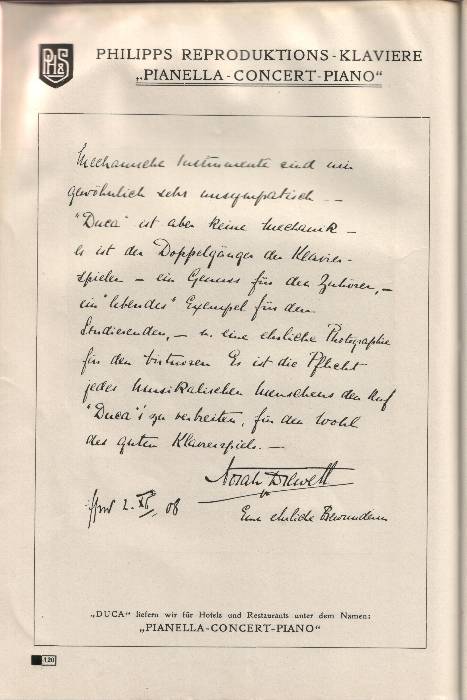 PH&S
PHILIPPS REPRODUKTIONS-KLAVIERE
„PIANELLA-CONCERT-PIANO“
Mechanische Instrumente sind mir
gewöhnlich sehr unsympatisch --
"Duca" ist aber keine Mechanik –
es ist der Doppelgänger der Klavier-
spieler – ein Genuss für den Zuhörer, –
ein "lebendes" Exempel für den
Studierenden, – u. eine ehrliche Photographie
für den Virtuosen Es ist die Pflicht
jedes musikalischen Menschens den Ruf
"Duca"'s zu verbreiten, für den Wohl
des guten Klavierspiels. –
Norah Drewett
Ffm 2. XII, 08
Eine ehrliche Bewunderin
„DUCA“ liefern wir für Hotels und Restaurants unter dem Namen:
„PIANELLA-CONCERT-PIANO“
120